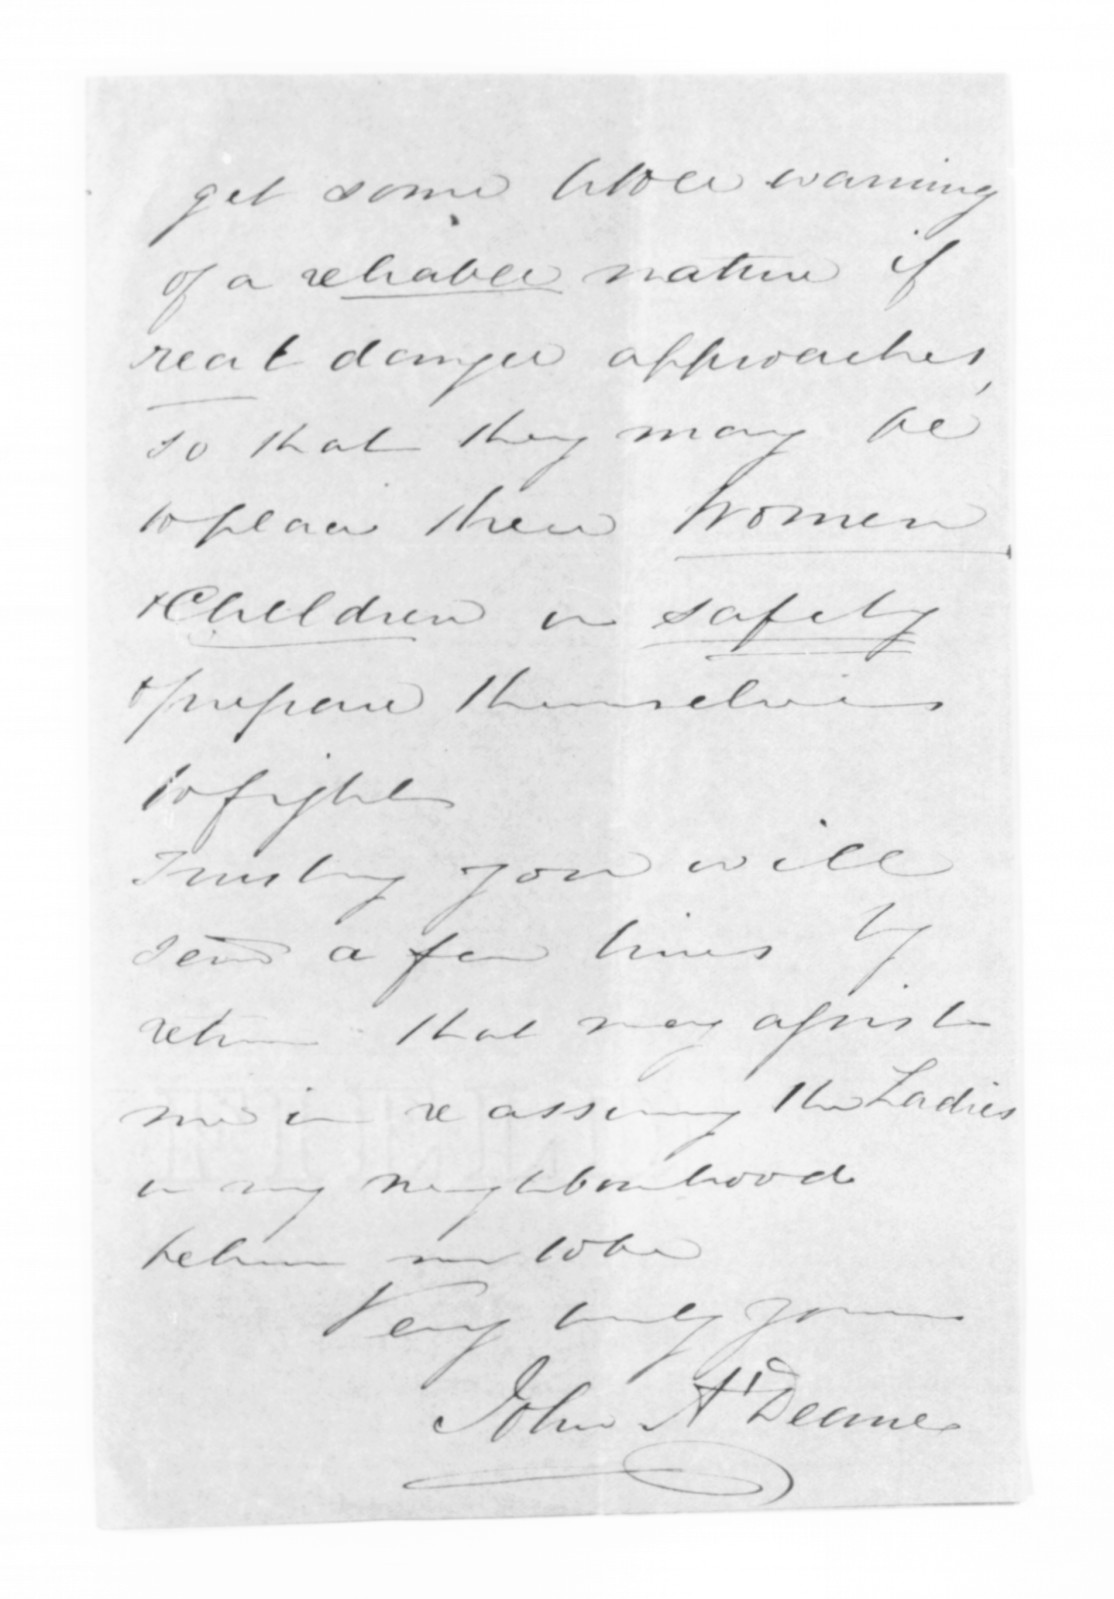 get some little warning
of a reliable nature if
real danger approaches,
so that they may be
to place their Women
& Children in safety
& prepare themselves
to fight
Trusting you will
send a few lines by
return that may assist
me in reassuring the Ladies
in my neighbourhood
believe me to be
Very truly yours
John A' Deane